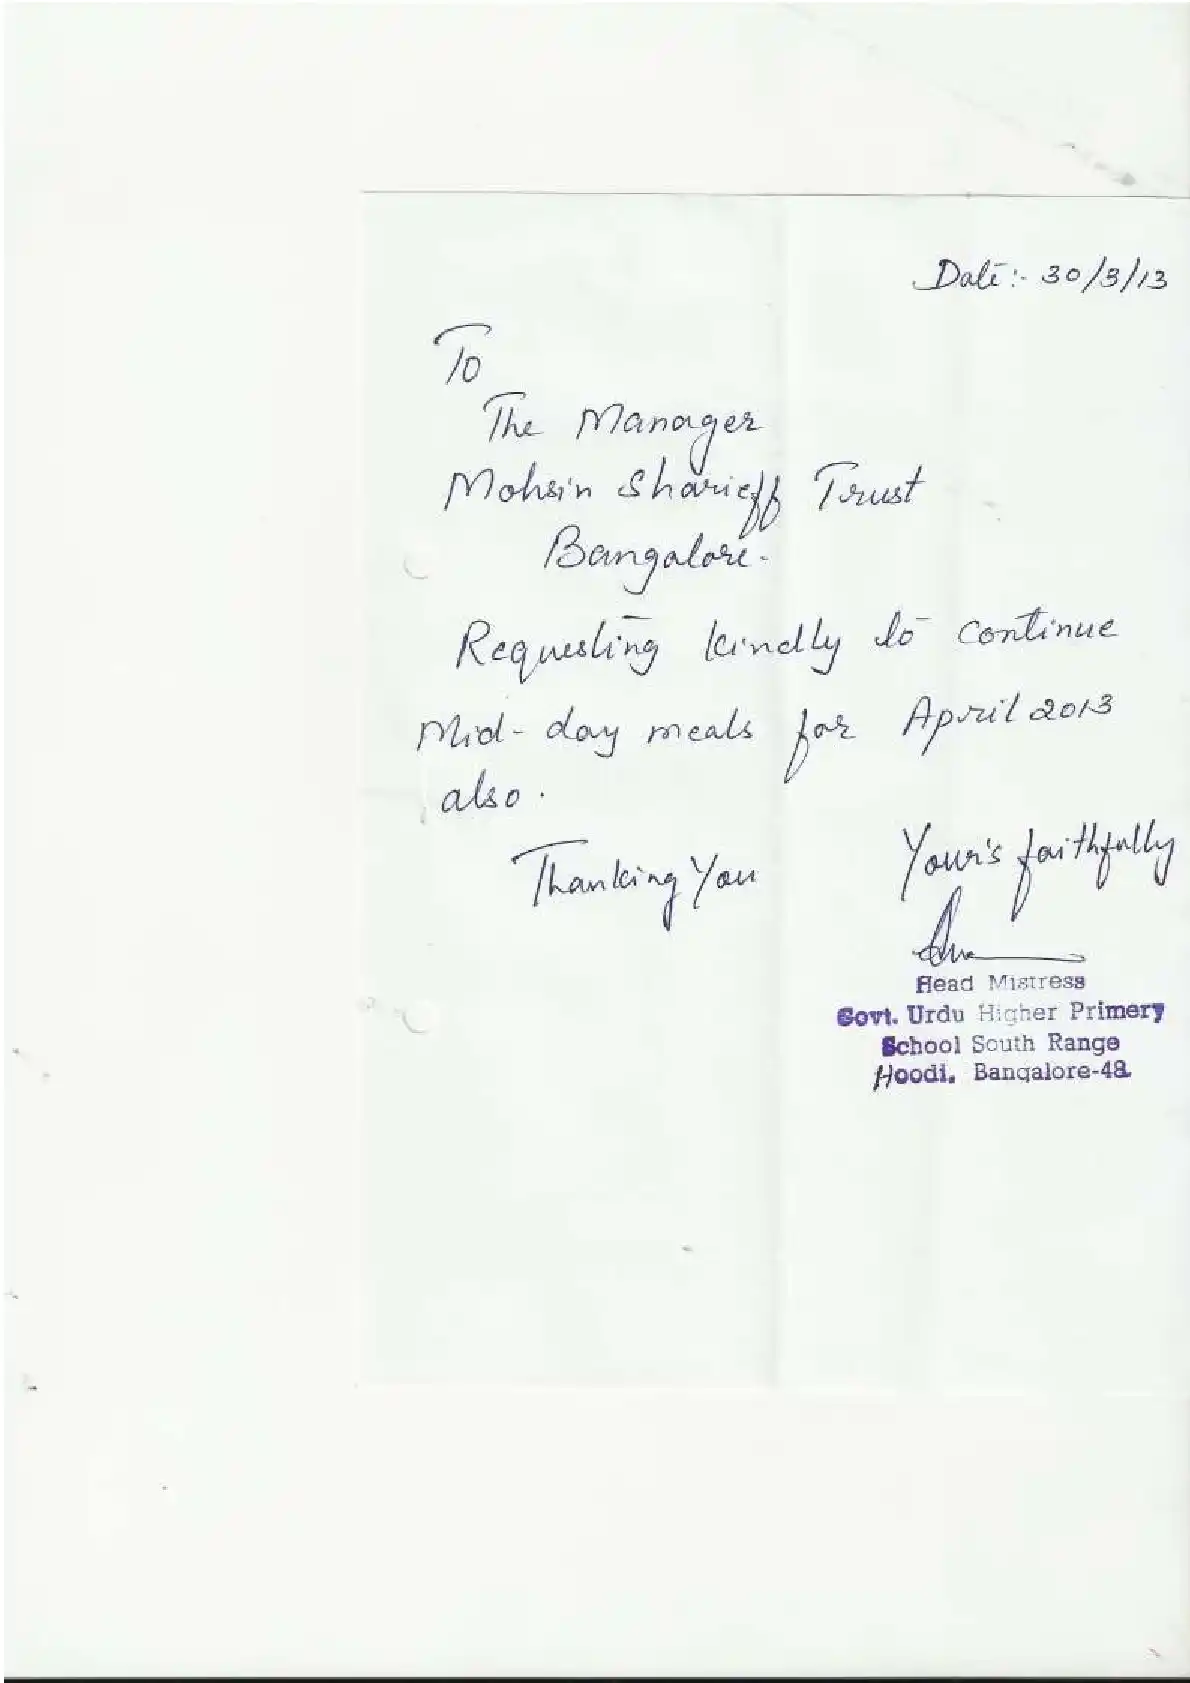 Date:- 30/3/13
To
The Manager
Mohsin Sharieff Trust
Bangalore.
Requesting kindly to continue
Mid-day meals for April 2013
also.
Thanking You
Your's faithfully
Head Mistress
Govt. Urdu Higher Primery
School South Range
Hoodi, Bangalore-48